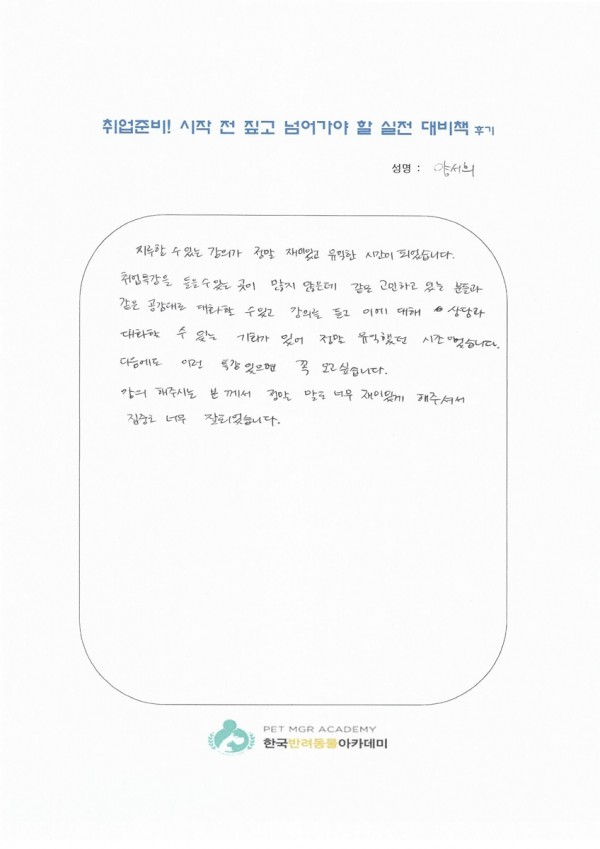 취업준비! 시작 전 짚고 넘어가야 할 실전 대비책 후기
성명 : 양서희
지루할 수 있는 강의가 정말 재미있고 유익한 시간이 되었습니다.
취업특강을 들을 수 있는 곳이 많지 않은데 같은 고민하고 있는 분들과
같은 공감대로 대화할 수 있고 강의를 듣고 이에 대해 상담과
대화할 수 있는 기회가 있어 정말 유익했던 시간이었습니다.
다음에도 이런 특강 있으면 꼭 오고싶습니다.
강의 해주시는 분 께서 정말 말도 너무 재미있게 해주셔서
집중도 너무 잘되었습니다.
PET MGR ACADEMY
한국반려동물아카데미